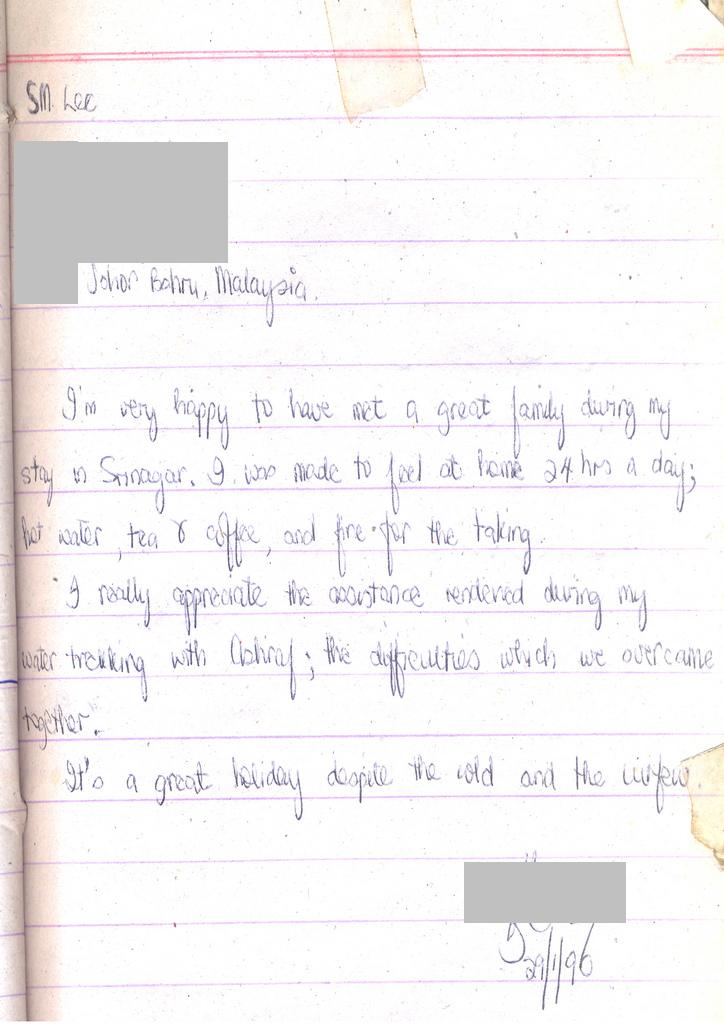 SM. Lee
Johor Bahru, Malaysia.
I'm very happy to have met a great family during my
stay in Srinagar. I was made to feel at home 24 hrs a day;
hot water, tea & coffee, and fire for the taking.
I really appreciate the assistance rendered during my
water trekking with Ashraf; the difficulties which we overcame
together.
It's a great holiday despite the cold and the curfew.
29/1/96